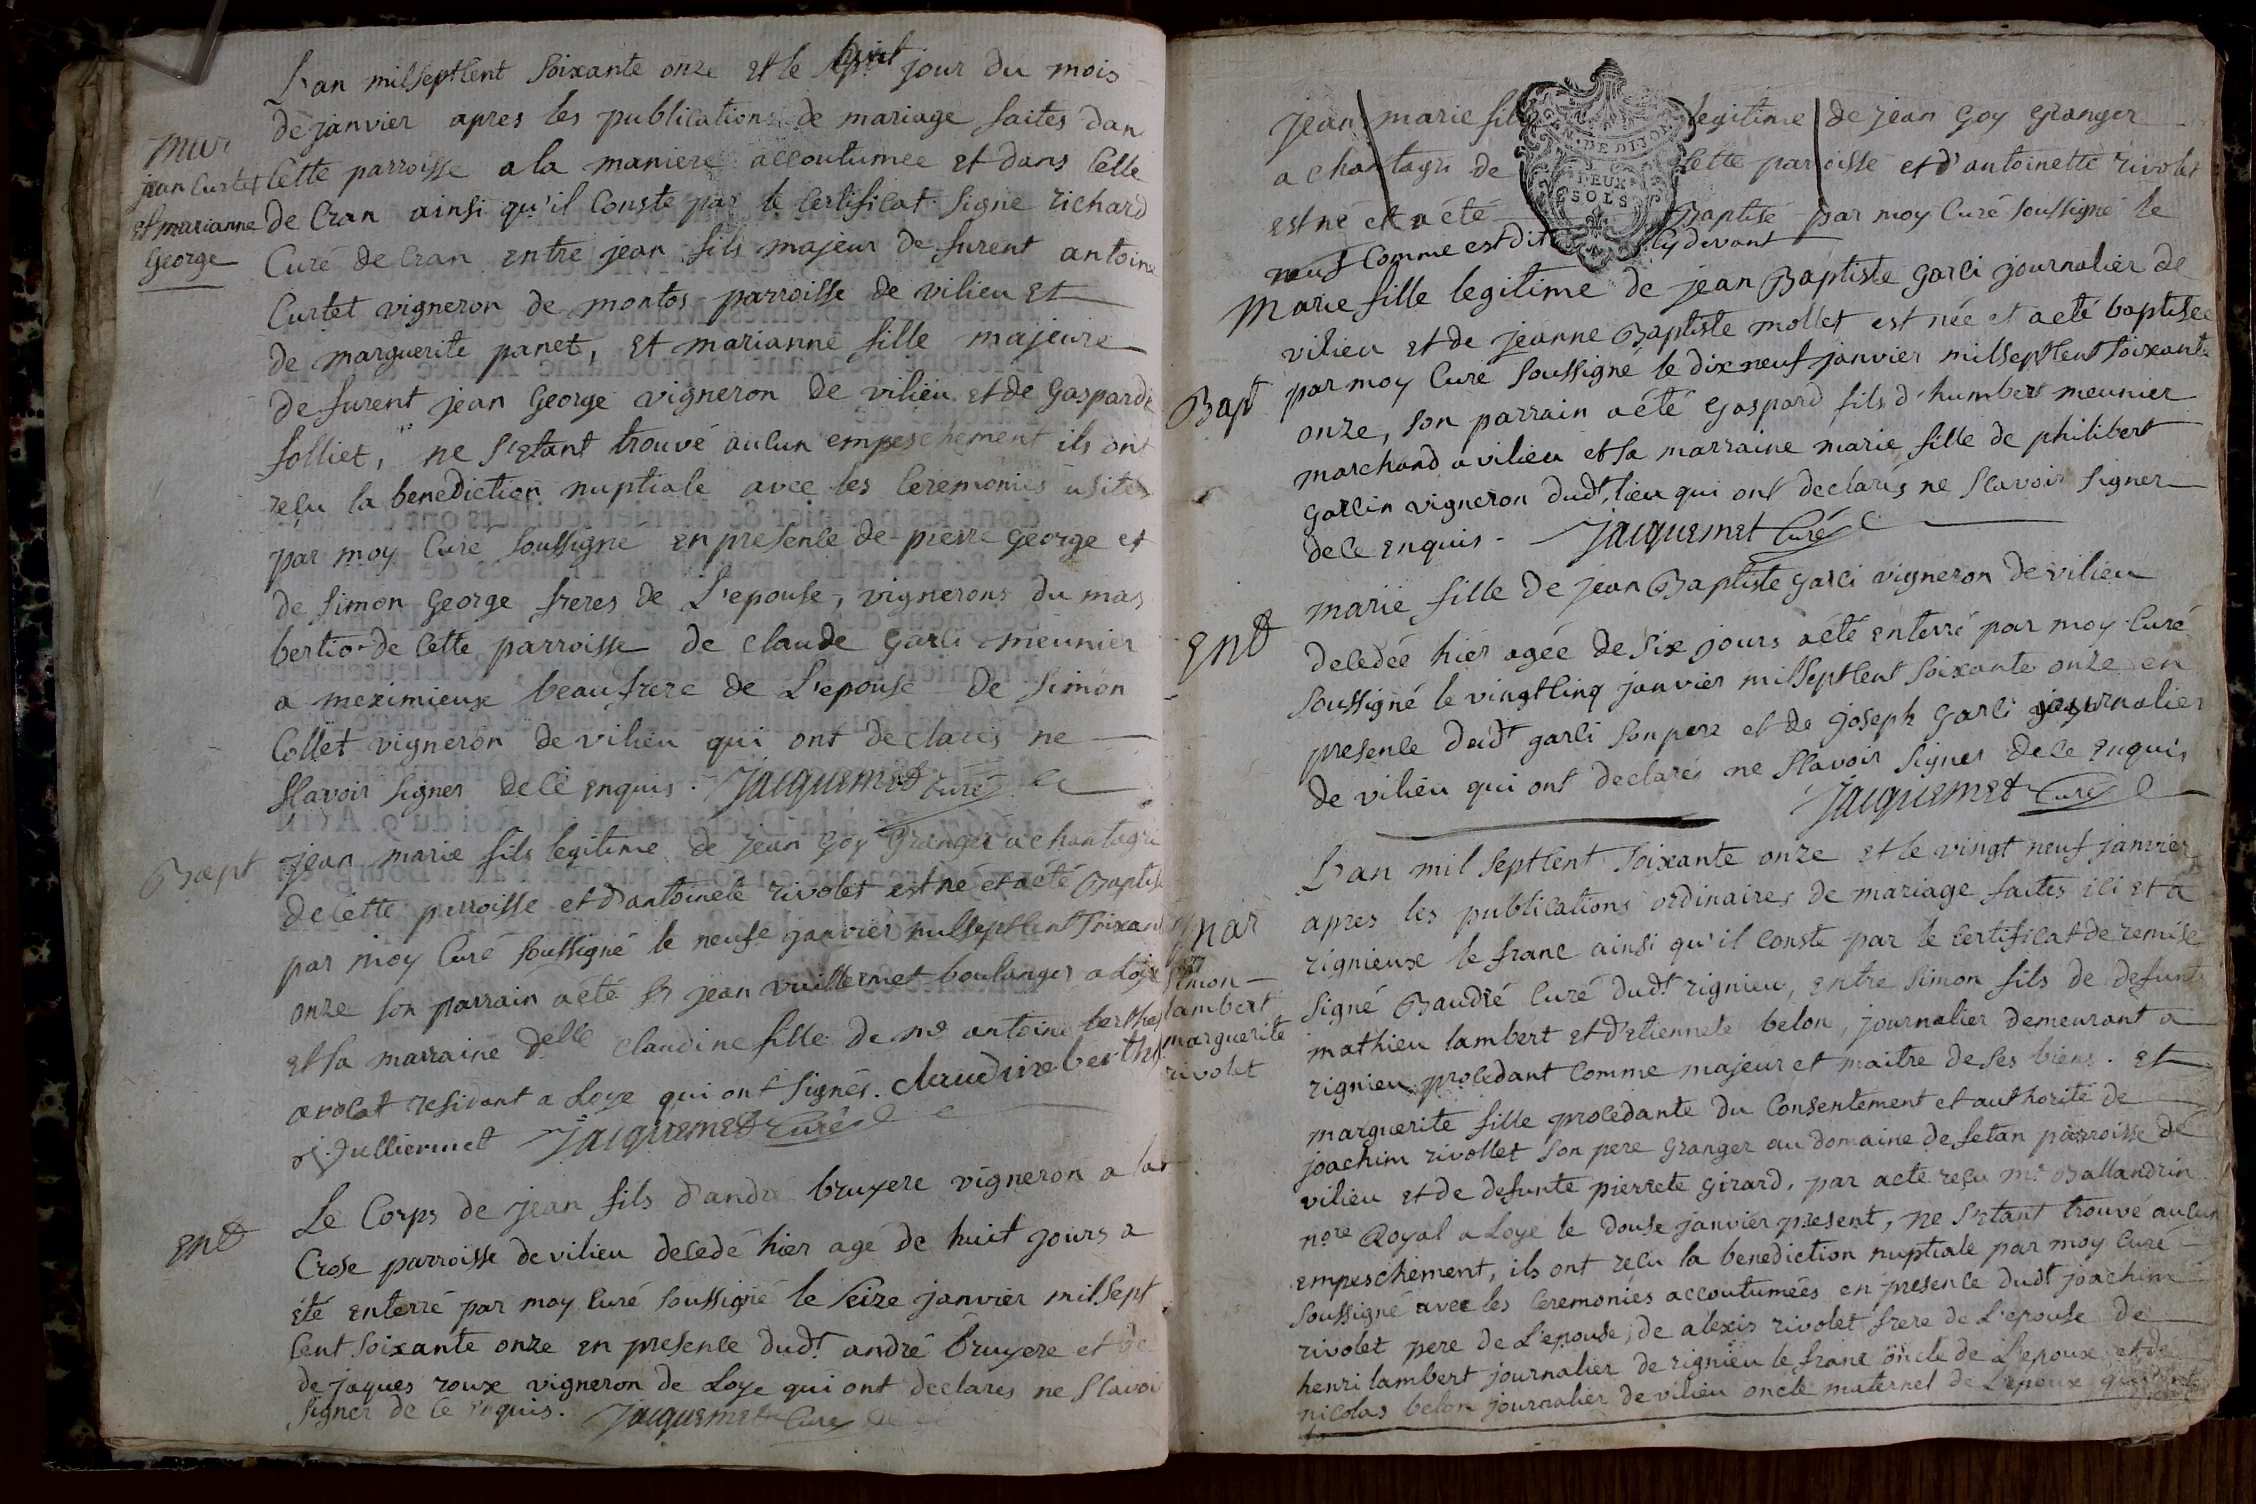 L'an mil sept Cent soixante onze et le huit jour du mois
de janvier apres les publications de mariage faites dan
Mar Cette parroisse a la maniere accoutumee et dans Celle
jean Curtet
et marianne de Cran ainsi qu'il Conste par le Certificat signe richard
George Curé de Cran entre jean fils majeur de furent antoine
Curtet vigneron de montos parroisse de vilieu et
de marguerite panet, et marianne fille majeure
de furent jean George vigneron de vilieu et de Gasparde
folliet, ne s'etant trouvé aucun empeschement ils ont
reçu la benediction nuptiale avec les Ceremonies usites
par moy Curé soussigné en presence de pierre George et
de simon George freres de L'epouse, vignerons du mas
bertio de Cette parroisse de claude Garci meunier
a meximieux beaufrere de L'epouse de simon
Collet vigneron de vilieu qui ont declarés ne
sçavoir signer de ce enquis. Jacquemet Curé
Bapt jean marie fils legitime de jean Goy Granger a chantagri
de Cette parroisse et d'antoinete rivolet est né et a été Baptise
par moy Curé soussigné le neufe janvier mil sept Cent soixant
onze son parrain a été Sr jean vuillermet boulanger a Loye
et sa marraine delle Claudine fille de me antoine berthe
avocat residant a Loye qui ont signés. claudine berthe
j. Vulliermet Jacquemet Curé
Ent Le Corps de jean fils d'andré bruyere vigneron a la
Crose parroisse de vilieu decedé hier agé de huit jours a
été enterré par moy Curé soussigné le seize janvier mil sept
Cent soixante onze en presence dudt andré bruyere et de
de jaques roux vigneron de Loye qui ont declarés ne sçavoir
signer de ce enquis. Jacquemet Curé
jean marie fils legitime de jean Goy Granger
a chantagri de Cette parroisse et d'antoinette rivolet
est né et a été Baptisé par moy Curé soussigné le
neuf Comme est dit Cy devant
DEUX
SOLS
Marie fille legitime de jean Baptiste Garci journalier de
vilieu et de jeanne Baptiste mollet est née et a été baptisée
Bapt par moy Curé soussigné le dix neuf janvier mil sept Cent soixante
onze, son parrain a été Gaspard fils d'humbert meunier
marchand a vilieu et sa marraine marie fille de philibert
Garcin vigneron dudt lieu qui ont declarés ne sçavoir signer
de ce enquis - Jacquemet Curé
marie fille de jean Baptiste Garci vigneron de vilieu
Ent decedée hier agée de six jours a été enterré par moy Curé
soussigné le vingt Cinq janvier mil sept Cent soixante onze en
presence dudt garci son pere et de joseph Garci journalier
de vilieu qui ont declarés ne sçavoir signer de ce enquis
Jacquemet Curé
L'an mil sept Cent soixante onze et le vingt neuf janvier
Mar apres les publications ordinaires de mariage faites ici et a
rignieux le franc ainsi qu'il Conste par le Certificat de remise
simon
lambert signé Baudré Curé dudt rignieu, entre simon fils de defunt
marguerite mathieu lambert et d'etiennete belon, journalier demeurant a
rivolet rignieu procedant Comme majeur et maitre de ses biens. et
marguerite fille procedante du Consentement et authorité de
joachim rivollet son pere Granger au domaine de fetan parroisse de
vilieu et de defunte pierrete Girard, par acte reçu me Ballandrin
nore Royal a Loye le douse janvier present, ne s'etant trouvé aucun
empeschement, ils ont reçu la benediction nuptiale par moy Curé
soussigné avec les Ceremonies accoutumées en presence dudt joachim
rivolet pere de L'epouse, de alexis rivolet frere de L'epouse de
henri lambert journalier de rignieu le franc oncle de L'epoux et de
nicolas belon journalier de vilieu oncle maternel de L'epoux